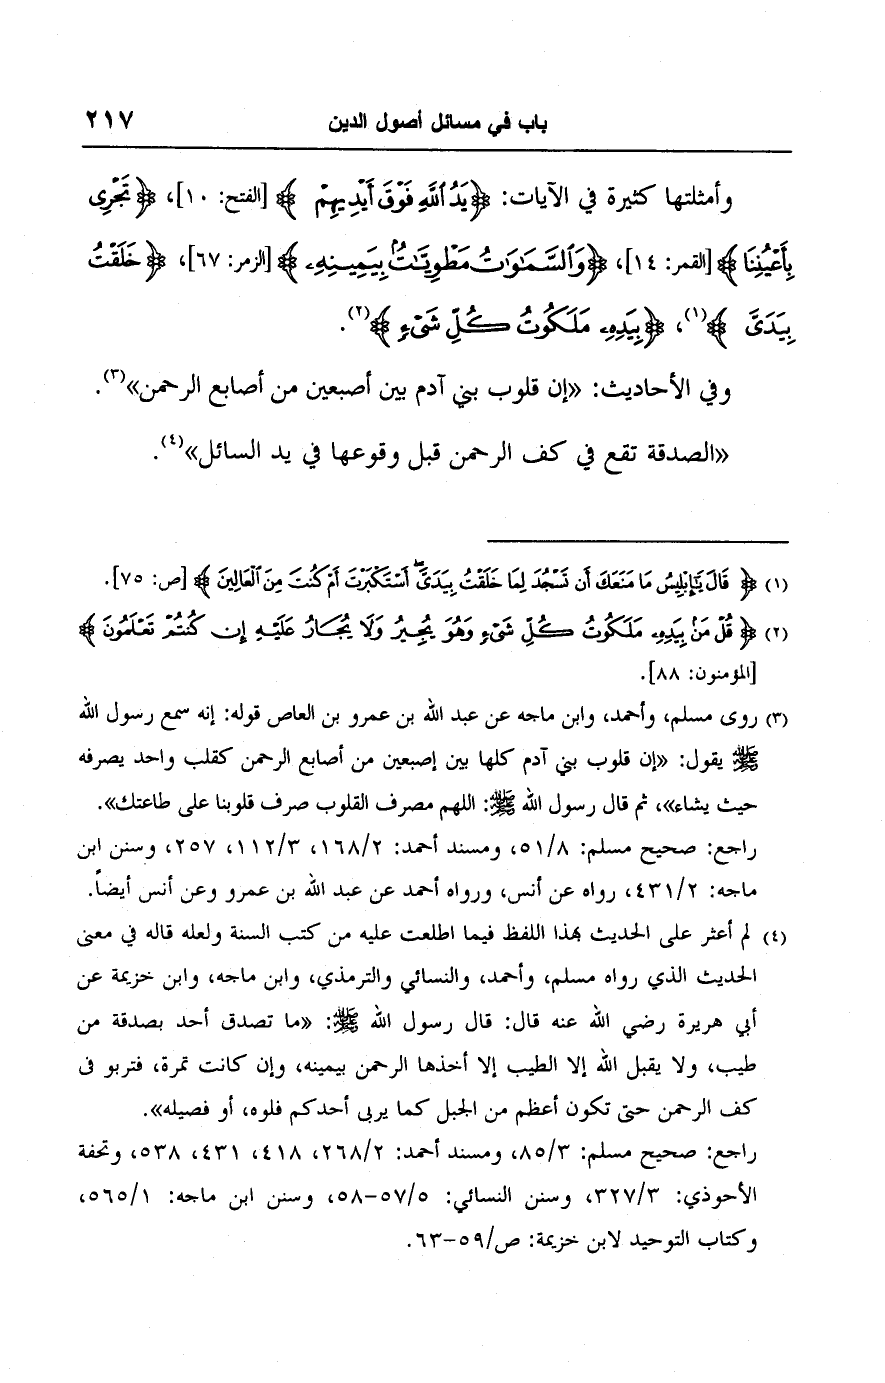 باب في مسائل أصول الدين ٢١٧
وأمثلتها كثيرة في الآيات: ﴿يَدُ ٱللَّهِ فَوْقَ أَيْدِيهِمْ﴾ [الفتح: ١٠]، ﴿تَجْرِى
بِأَعْيُنِنَا﴾ [القمر: ١٤]، ﴿وَٱلسَّمَٰوَٰتُ مَطْوِيَّٰتٌۢ بِيَمِينِهِۦ﴾ [الزمر: ٦٧]، ﴿خَلَقْتُ
بِيَدَىَّ﴾(١)، ﴿بِيَدِهِۦ مَلَكُوتُ كُلِّ شَىْءٍ﴾(٢).
وفي الأحاديث: «إن قلوب بني آدم بين أصبعين من أصابع الرحمن»(٣).
«الصدقة تقع في كف الرحمن قبل وقوعها في يد السائل»(٤).
(١) ﴿قَالَ يَٰٓإِبْلِيسُ مَا مَنَعَكَ أَن تَسْجُدَ لِمَا خَلَقْتُ بِيَدَىَّۖ أَسْتَكْبَرْتَ أَمْ كُنتَ مِنَ ٱلْعَالِينَ﴾ [ص: ٧٥].
(٢) ﴿قُلْ مَنۢ بِيَدِهِۦ مَلَكُوتُ كُلِّ شَىْءٍ وَهُوَ يُجِيرُ وَلَا يُجَارُ عَلَيْهِ إِن كُنتُمْ تَعْلَمُونَ﴾
[المؤمنون: ٨٨].
(٣) روى مسلم، وأحمد، وابن ماجه عن عبد الله بن عمرو بن العاص قوله: إنه سمع رسول الله
ﷺ يقول: «إن قلوب بني آدم كلها بين إصبعين من أصابع الرحمن كقلب واحد يصرفه
حيث يشاء»، ثم قال رسول الله ﷺ: اللهم مصرف القلوب صرف قلوبنا على طاعتك».
راجع: صحيح مسلم: ٥١/٨، ومسند أحمد: ١٦٨/٢، ١١٢/٣، ٢٥٧، وسنن ابن
ماجه: ٤٣١/٢، رواه عن أنس، ورواه أحمد عن عبد الله بن عمرو وعن أنس أيضاً.
(٤) لم أعثر على الحديث بهذا اللفظ فيما اطلعت عليه من كتب السنة ولعله قاله في معنى
الحديث الذي رواه مسلم، وأحمد، والنسائي والترمذي، وابن ماجه، وابن خزيمة عن
أبي هريرة رضي الله عنه قال: قال رسول الله ﷺ: «ما تصدق أحد بصدقة من
طيب، ولا يقبل الله إلا الطيب إلا أخذها الرحمن بيمينه، وإن كانت تمرة، فتربو فى
كف الرحمن حتى تكون أعظم من الجبل كما يربى أحدكم فلوه، أو فصيله».
راجع: صحيح مسلم: ٨٥/٣، ومسند أحمد: ٢٦٨/٢، ٤١٨، ٤٣١، ٥٣٨، وتحفة
الأحوذي: ٣٢٧/٣، وسنن النسائي: ٥٧/٥-٥٨، وسنن ابن ماجه: ٥٦٥/١،
وكتاب التوحيد لابن خزيمة: ص/٥٩-٦٣.